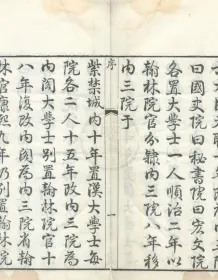 曰國史院曰秘書院曰宏文院
各置大學士一人順治二年以
翰林院官分隸內三院八年移
內三院于
序
一
紫禁城內十年置漢大學士每
院各二人十五年改內三院為
內閣大學士別置翰林院官十
八年復改內閣為內三院省翰
林官康熙九年乃別置翰林院